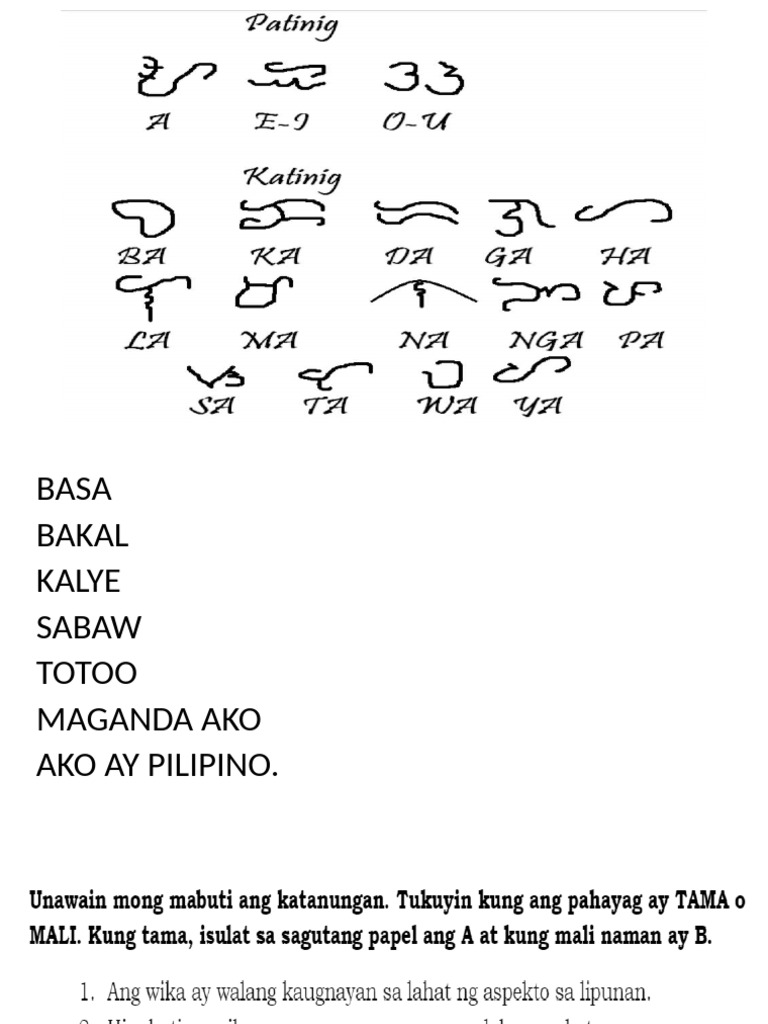 Patinig
ᜀ ᜁ ᜂ
A E-I O-U
Katinig
ᜊ ᜃ ᜇ ᜄ ᜑ
BA KA DA GA HA
ᜎ ᜋ ᜈ ᜅ ᜉ
LA MA NA NGA PA
ᜐ ᜆ ᜏ ᜌ
SA TA WA YA
BASA
BAKAL
KALYE
SABAW
TOTOO
MAGANDA AKO
AKO AY PILIPINO.
Unawain mong mabuti ang katanungan. Tukuyin kung ang pahayag ay TAMA o
MALI. Kung tama, isulat sa sagutang papel ang A at kung mali naman ay B.
1. Ang wika ay walang kaugnayan sa lahat ng aspekto sa lipunan.